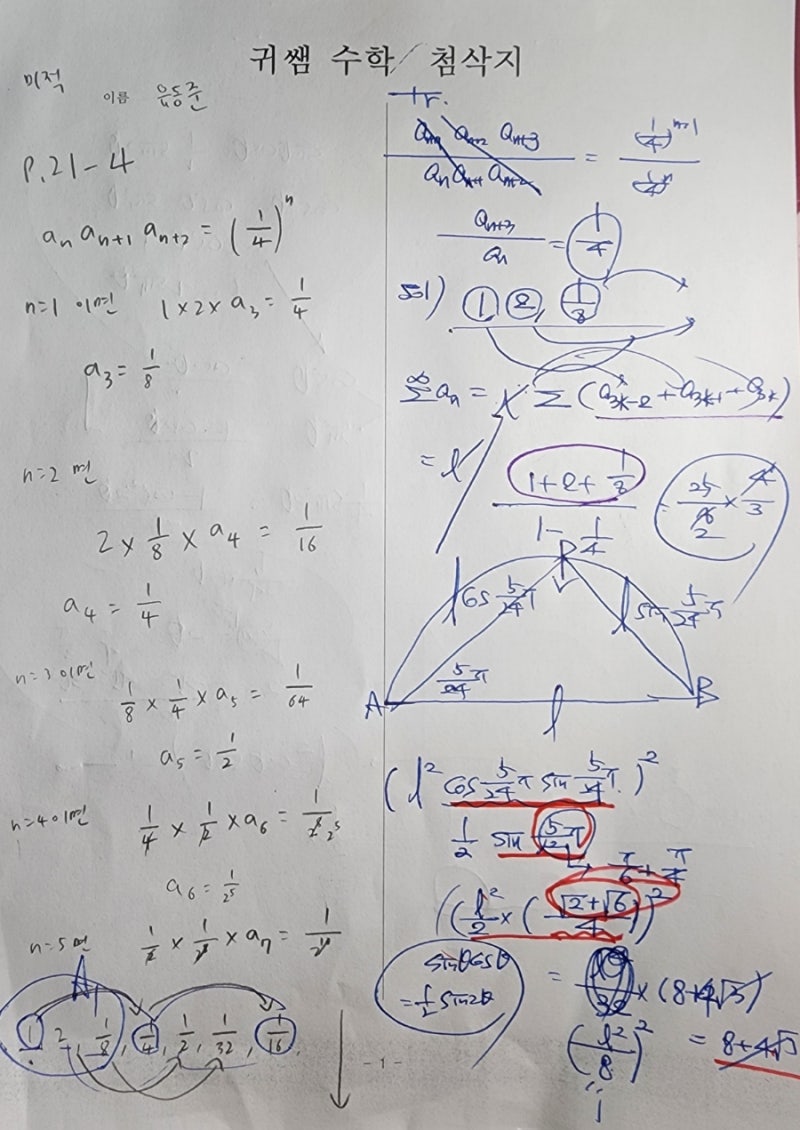 귀쌤 수학 / 첨삭지
미적
이름 윤동준
P.21-4
aₙ aₙ₊₁ aₙ₊₂ = (1/4)ⁿ
n=1 이면 1×2×a₃ = 1/4
a₃ = 1/8
n=2 면
2 × 1/8 × a₄ = 1/16
a₄ = 1/4
n=3 이면
1/8 × 1/4 × a₅ = 1/64
a₅ = 1/2
n=4 이면 1/4 × 1/2 × a₆ = 1/2⁸
a₆ = 1/2⁵
n=5 면
A
1, 2, 1/8, 1/4, 1/2, 1/32, 1/16,
tr.
aₙ₊₁ aₙ₊₂ aₙ₊₃ / aₙ aₙ₊₁ aₙ₊₂ = (1/4)ⁿ⁺¹ / (1/4)ⁿ
aₙ₊₃ / aₙ = 1/4
sol) 1, 2, 1/8
= l (1+2+1/8) / (1 - 1/4) = 25/8 × 4/3
P
l cos 5/24 π
l sin 5/24 π
5/24 π
A
l
B
(l² cos 5/24 π sin 5/24 π)²
1/2 sin 5π/12
π/6 + π/4
(l²/2 × (√2+√6)/4)²
sinθcosθ
= 1/2 sin2θ
× (8+4√3)
(l²/8)² = 8+4√3
- 1 -